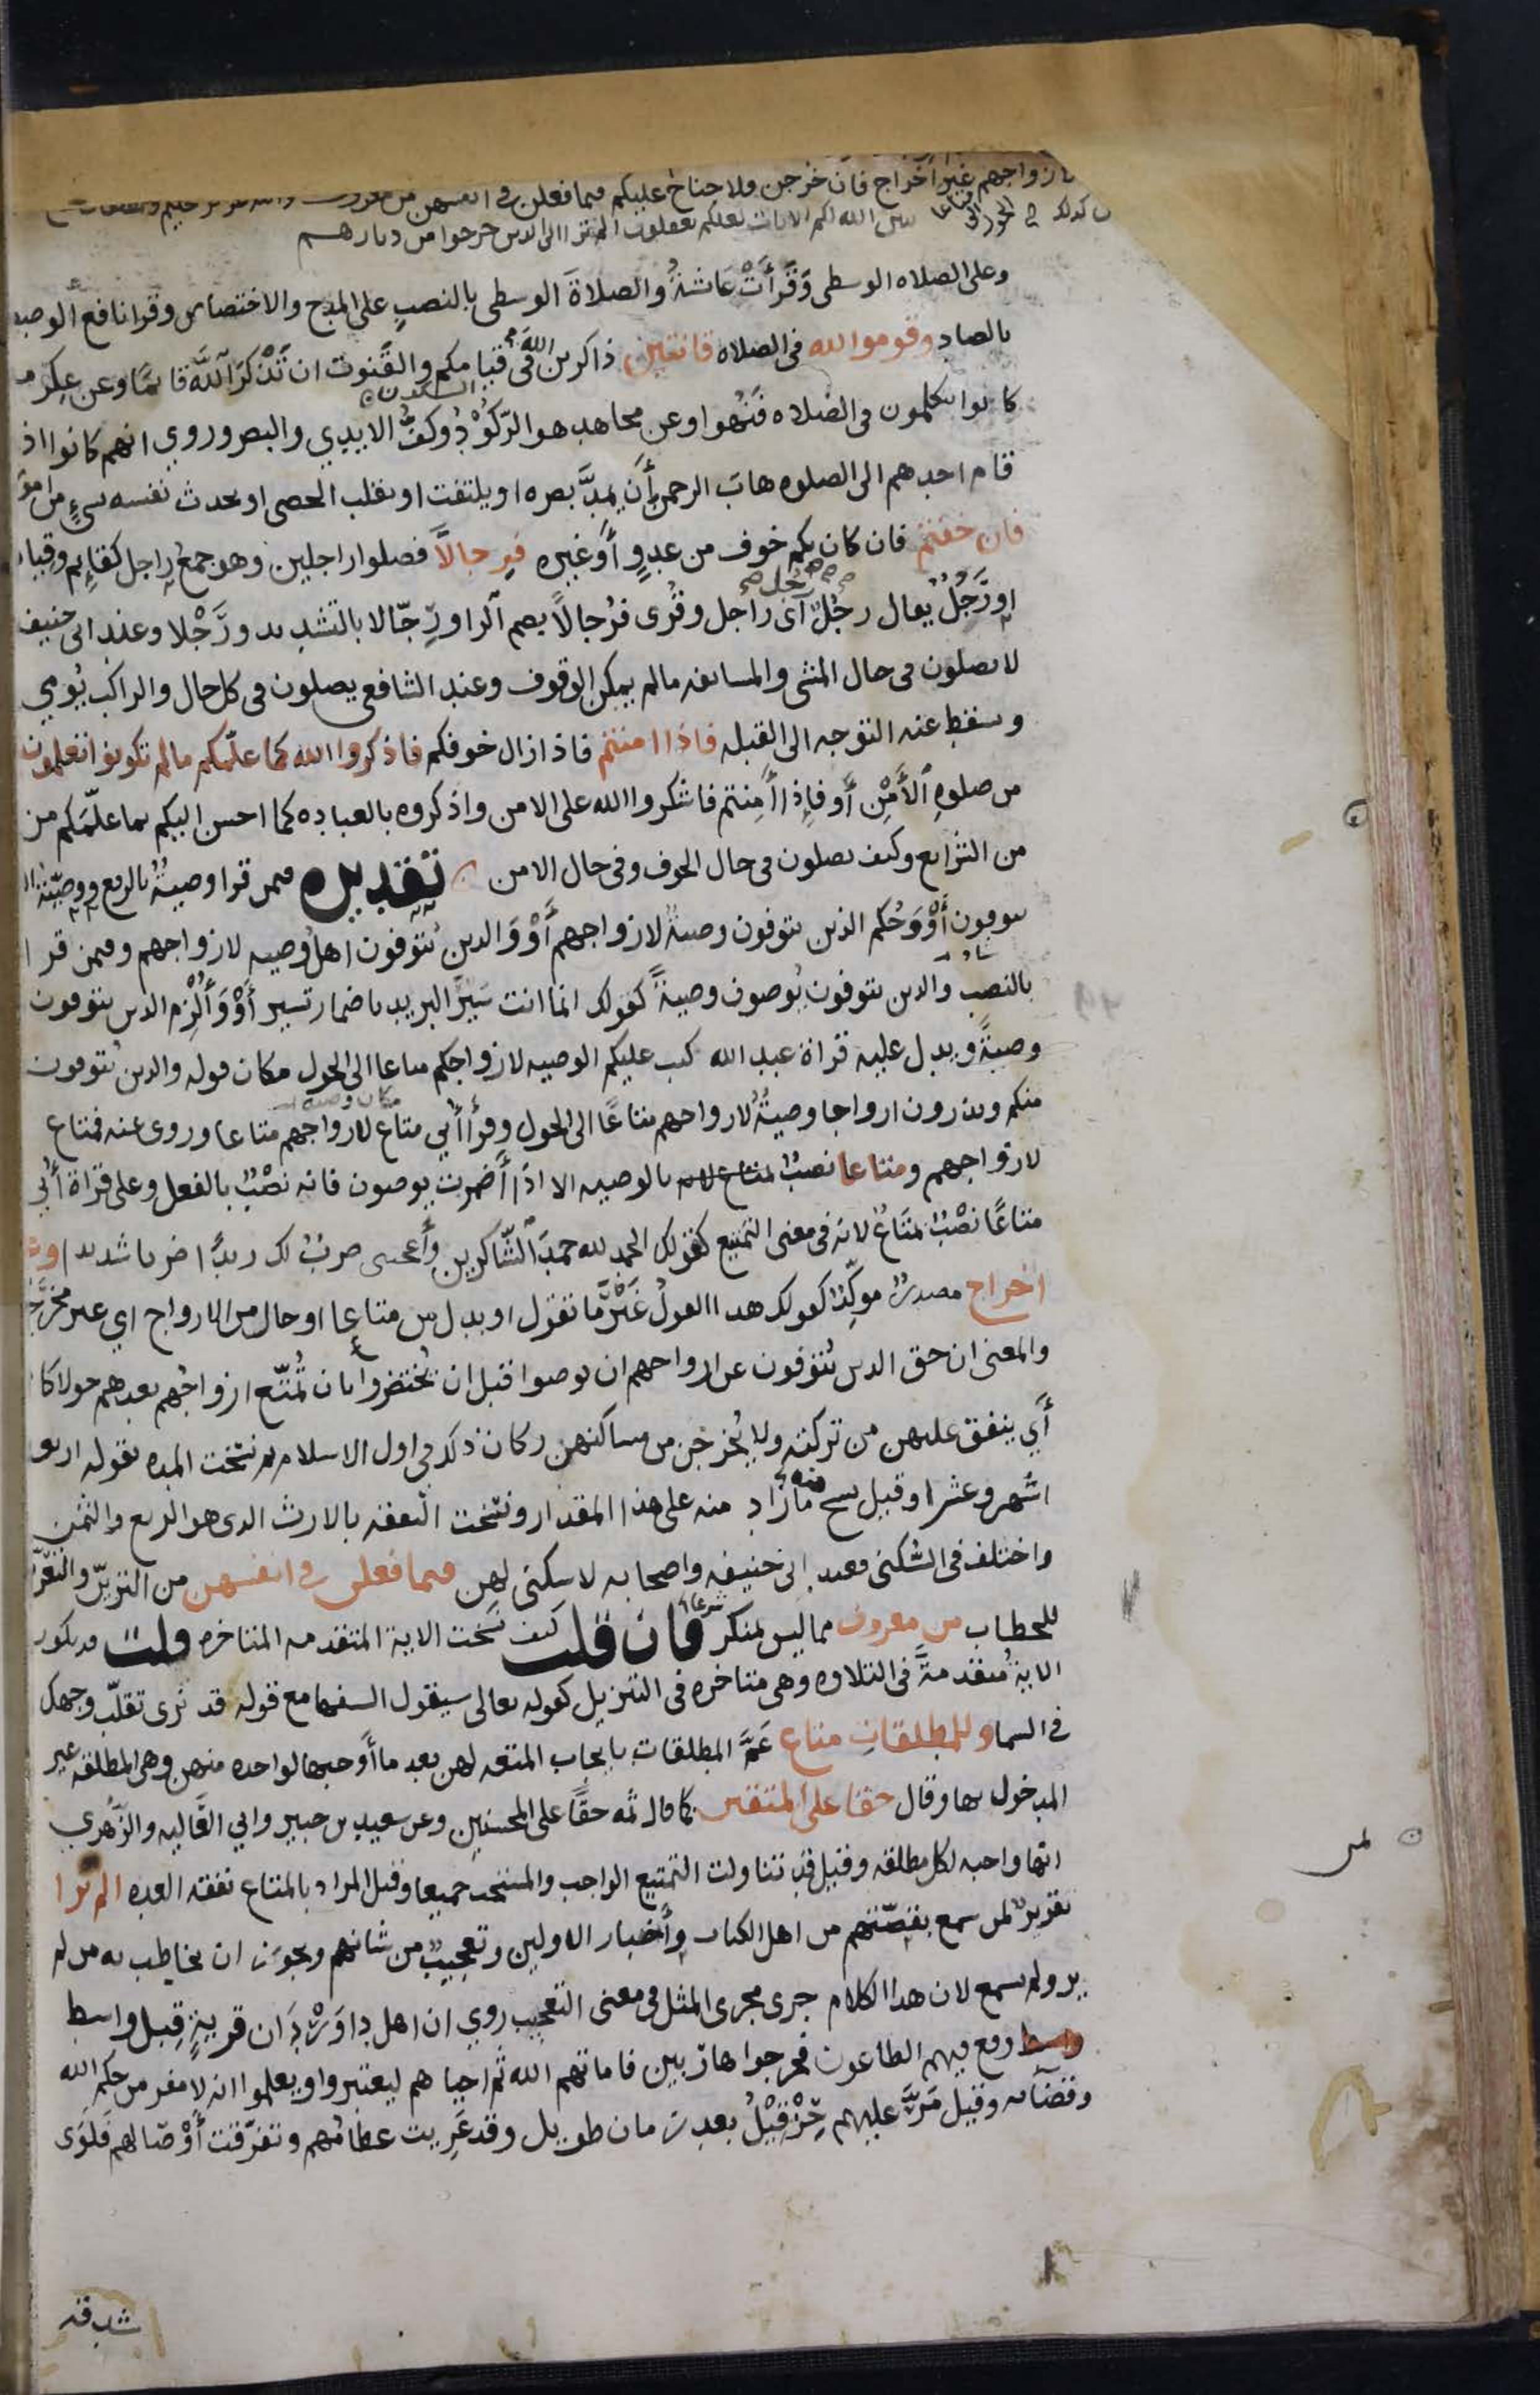 لازواجهم غير اخراج فان خرجن فلا جناح عليكم فيما فعلن في انفسهن من معروف والله عزيز حكيم وللمطلقات
كذلك يبين الله لكم الايات لعلكم تعقلون الم تر الى الذين خرجوا من ديارهم
متاعا الى الحول
وعلى الصلاه الوسطى وَقَرأَتْ عَائشةُ والصلاةَ الوسطى بالنصبِ على المدح والاختصاص وقرا نافع الوصطى
بالصاد وقوموا لله فى الصلاه قانتين ذاكرين الله فى قيامكم والقُنوت ان تَذْكرَ اللهَ قائمًا وعن عِكرمه
كانوا يتكلمون فى الصلاه فَنُهوا وعن مجاهد هو الرُّكُوْدُ وكفُّ الايدِي والبصر وروي انهم كانوا اذا
السكون
قام احدهم الى الصلوه هابَ الرحمنَ أَن يَمدَّ بصره او يلتفت او يقلب الحصى او يحدث نفسه بشىءٍ من امور
فان خفتم فان كان بكم خوف من عدوٍ أَو غيره فرِجالاً فصلوا راجلين وهو جمعُ راجل كقائِم وقيام
اورَجُلٍ يقال رجُلٌ أى راجل وقُرى فرُجالاً بضم الرا ورُجّالا بالتشديد ورَجْلا وعند ابى حنيفه
لا يصلون فى حال المشى والمسايفه مالم يمكن الوقوف وعند الشافعى يصلون فى كل حال والراكب يُومي
ويسقط عنه التوجه الى القبله فاذا امنتم فاذا زال خوفكم فاذكروا الله كما علّمكم مالم تكونوا تعلمون
من صلوهِ الأَمْنِ أَو فإِذا أَمِنتم فاشكروا الله على الامن واذكروه بالعباده كما احسن اليكم بما علّمَكم من
من الشرايع وكيف تصلون فى حال الخوف وفى حال الامن تقديره فيمن قرا وصيةٌ بالرفع ووصيّةُ الذين
يتوفون أَوْ وَحُكم الذين يتوفون وصيةٌ لازواجهم أَوْ وَالذين يُتوفون اهلُ وصيه لازواجهم وفيمن قرا
بالنصب والذين يتوفون يُوصون وصيةً كقولك انما انت سَيرَ البريد باضمار تسير أَوْ وَأُلْزِم الذين يتوفون
وصيةً ويدل عليه قراة عبد الله كتب عليكم الوصيه لازواجكم متاعا الى الحول مكان قوله والذين يُتوفون
منكم ويذرون ازواجا وصيةً لازواجهم متاعًا الى الحول وقرأ أُبي متاع لازواجهم متاعا وروى عنه فمتاع
مكان وصيه
لازواجهم ومتاعا نصبٌ بالوصيه الا اذا أَضمرت يوصون فانه نصْبٌ بالفعل وعلى قراة أُبي
متاعًا نصْبٌ بمَتاعٌ لانه فى معنى التمتيع كقولك الحمد لله حمدَ الشاكرين وأَعجبنى ضربٌ لك زيدًا ضربا شديدا وغير
اخراج مصدرٌ موكِّدٌ كقولك هذا القولُ غَيْرَ ما تقول او بدل من متاعا او حال من الازواج اي غير مُخْرَجاتٍ
والمعنى ان حق الذين يُتوفون عن ازواجهم ان يوصوا قبل ان يُحتضروا بان تُمتّع ازواجُهم بعدهم حولا كاملا
أَي ينفق عليهن من تركته ولا يُخرجن من مساكنهن وكان ذلك فى اول الاسلام ثم نسخت المده بقوله اربعه
اشهر وعشرا وقيل نسخ ما زاد منه على هذا المقدار ونسخت النفقه بالارث الذى هو الربع والثمن
واختلف فى السُّكنى فعند ابى حنيفه واصحابه لا سكنى لهن فيما فعلن فى انفسهن من التزيّن والتعرّض
للخطاب من معروف مما ليس بمنكر شرعا فان قلت كيف نسَخت الاية المتقدمه المتاخره قلت قد يكون
الاية مُتقدمةً فى التلاوه وهى متاخره فى التنزيل كقوله تعالى سيقول السفها مع قوله قد نرى تقلّب وجهك
فى السما وللمطلقاتِ متاع عَمَّ المطلقاتِ بايجاب المتعه لهن بعد ما أوجبها لواحده منهن وهى المطلقه غير
المدخول بها وقال حقا على المتقين كما قال ثمه حقًا على المحسنين وعن سعيد بن جبير وابي العَاليه والزُّهري
انها واجبه لكل مطلقه وقيل قد تناولت التمتيع الواجب والمستحب جميعا وقيل المراد بالمتاع نفقه العده الم تر
تقريرٌ لمن سمع بقصّتهم من اهل الكتاب وأَخبار الاولين وتعجيبٌ من شانهم ويجوز ان يخاطب به من لم
ير ولم يسمع لان هذا الكلام جرى مجرى المثل فى معنى التعجيب روي ان اهل دَاوَرْدَان قريةٍ قِبل واسط
واسط وقع فيهم الطاعون فخرجوا هاربين فاماتهم الله ثم احياهم ليعتبروا ويعلموا انه لا مفر من حكم الله
وقضايه وقيل مَرَّ عليهم حِزْقِيْلُ بعد زمان طويل وقد عَرِيت عظامُهم وتفرّقت أَوْصالهم فلَوَى
شدقه